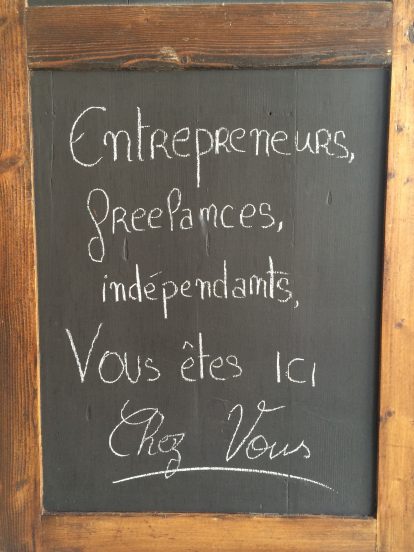 Entrepreneurs,
freelances,
indépendants,
Vous êtes ici
Chez Vous